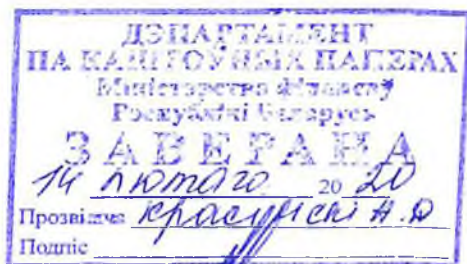 ДЭПАРТАМЕНТ
ПА КАШТОЎНЫХ ПАПЕРАХ
Міністэрства фінансаў
Рэспублікі Беларусь
ЗАВЕРАНА
14 лютага 20 20
Прозвішча Красуцкі Н.Ф
Подпіс